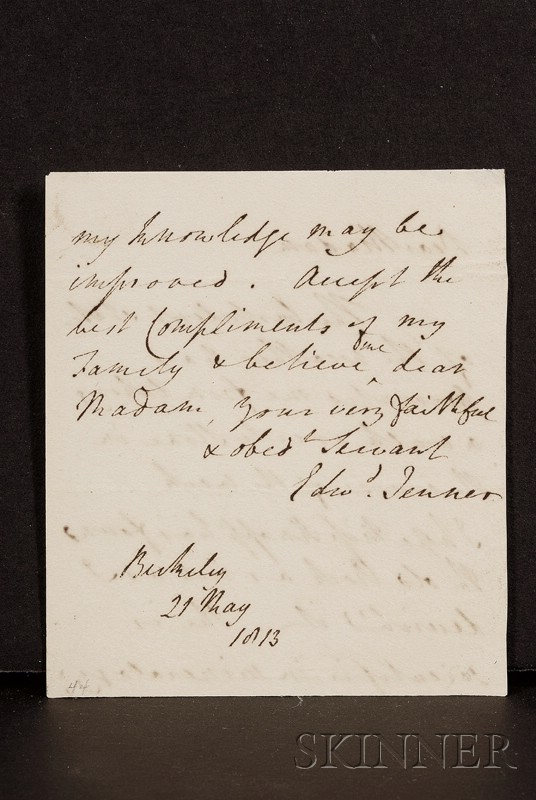 my knowledge may be
improved. Accept the
best Compliments of my
Family & believe me dear
Madam, your very faithful
& obedt Servant
Edwd. Jenner
Berkeley
21 May
1813
44
SKINNER